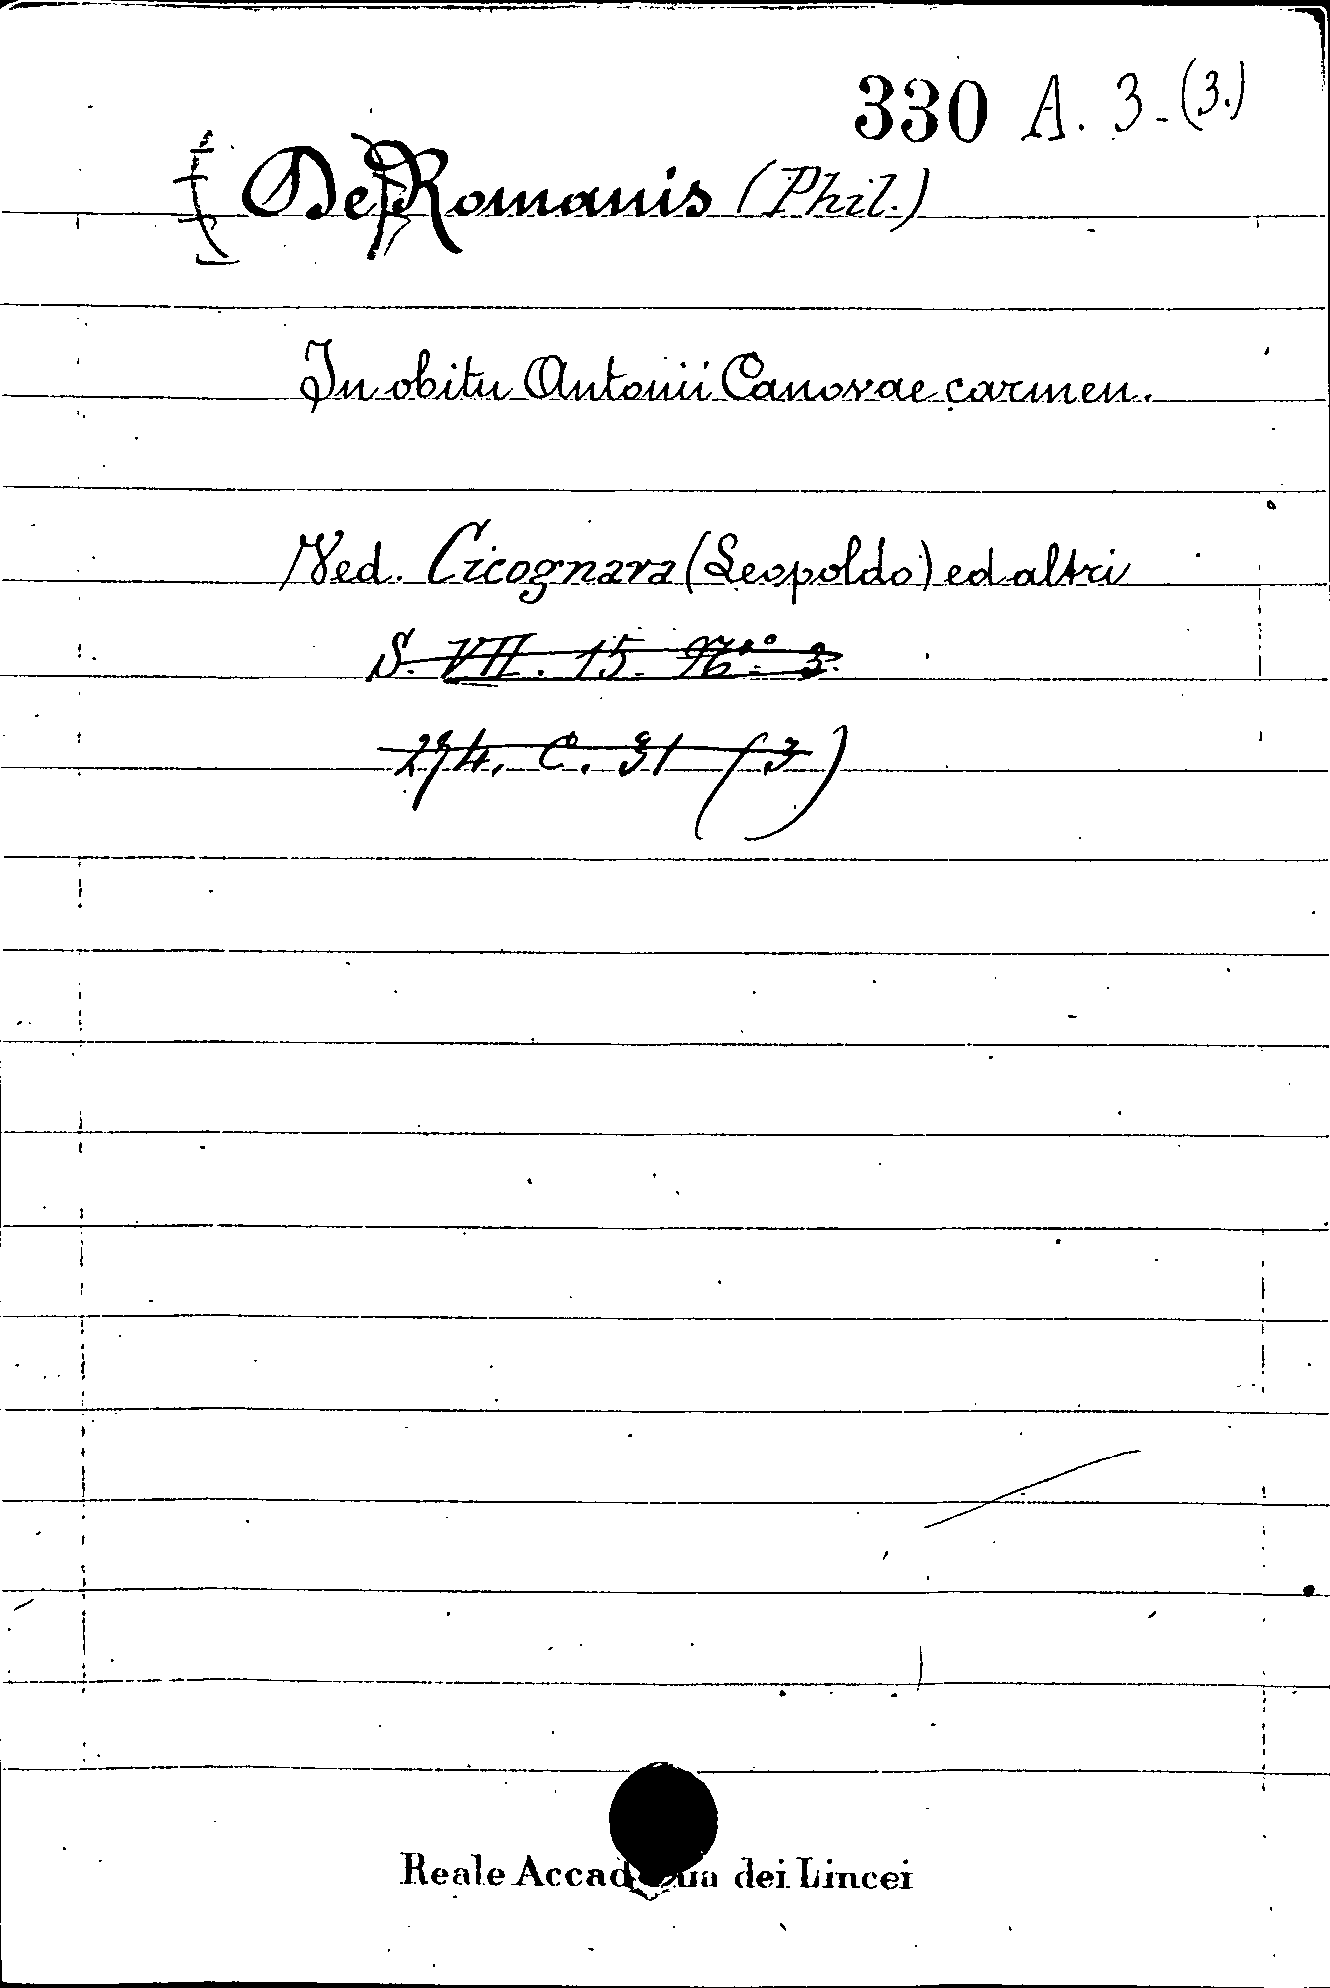 330 A. 3-(3.)
De Romanis (Phil.)
In obitu Antonii Canovae carmen.
Ved. Cicognara (Leopoldo) ed altri
S. VII. 15. No. 3.
274. C. 31 (3)
Reale Accad ia dei Lincei